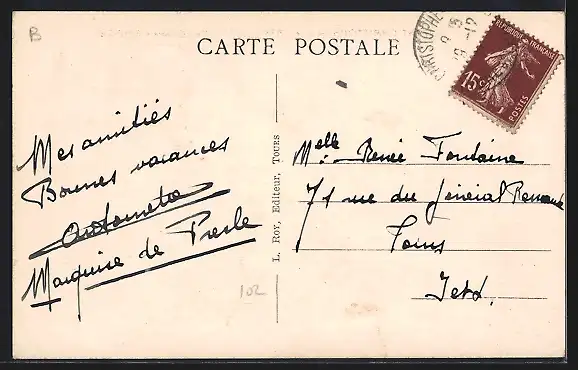 B
CARTE POSTALE
CHRISTOPHE
REPUBLIQUE FRANÇAISE
15c
POSTES
Mes amitiés
Bonnes vacances
Marquise de Presle
102
L. Roy, Editeur, Tours
Melle Renée Fontaine
71 rue du Général Renault
Tours